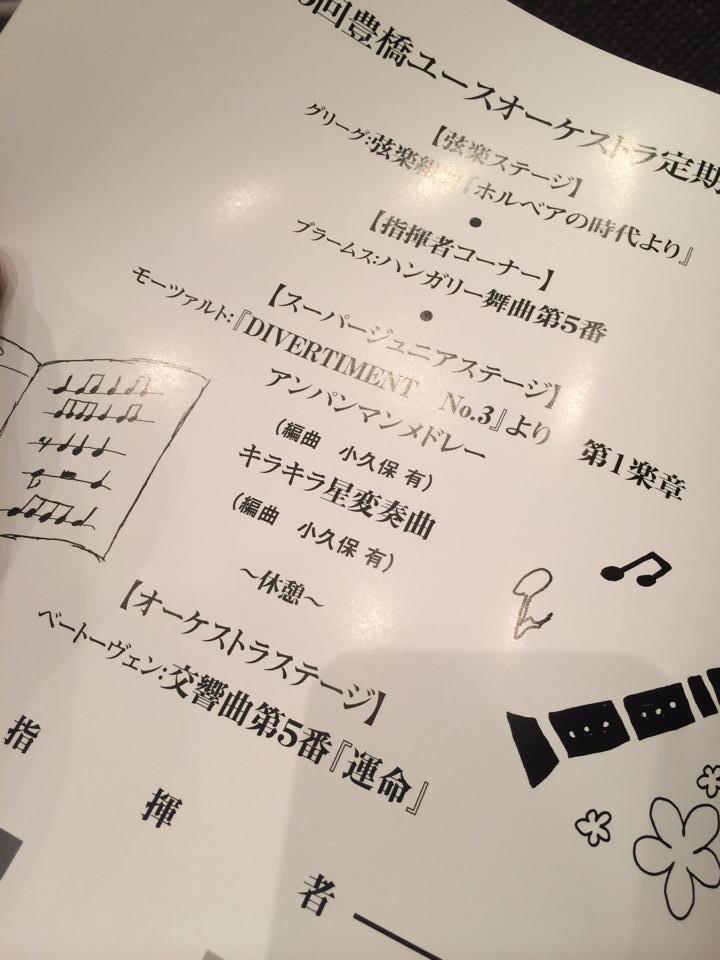 回豊橋ユースオーケストラ定期
【弦楽ステージ】
グリーグ:弦楽組曲『ホルベアの時代より』
●
【指揮者コーナー】
ブラームス:ハンガリー舞曲第5番
●
【スーパージュニアステージ】
モーツァルト:『DIVERTIMENT No.3』より 第1楽章
アンパンマンメドレー
(編曲 小久保 有)
キラキラ星変奏曲
(編曲 小久保 有)
～休憩～
【オーケストラステージ】
ベートーヴェン:交響曲第5番『運命』
指揮者